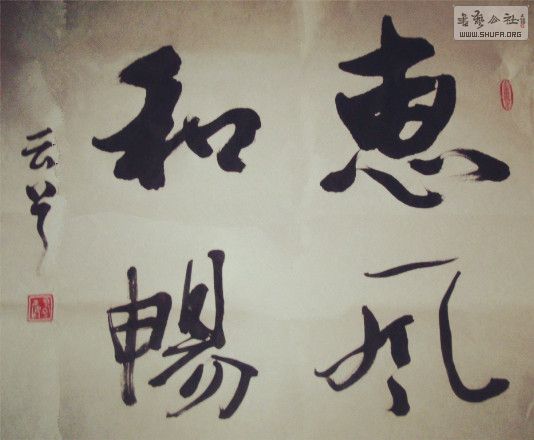 惠风
和畅
云兮
書藝公社
WWW.SHUFA.ORG